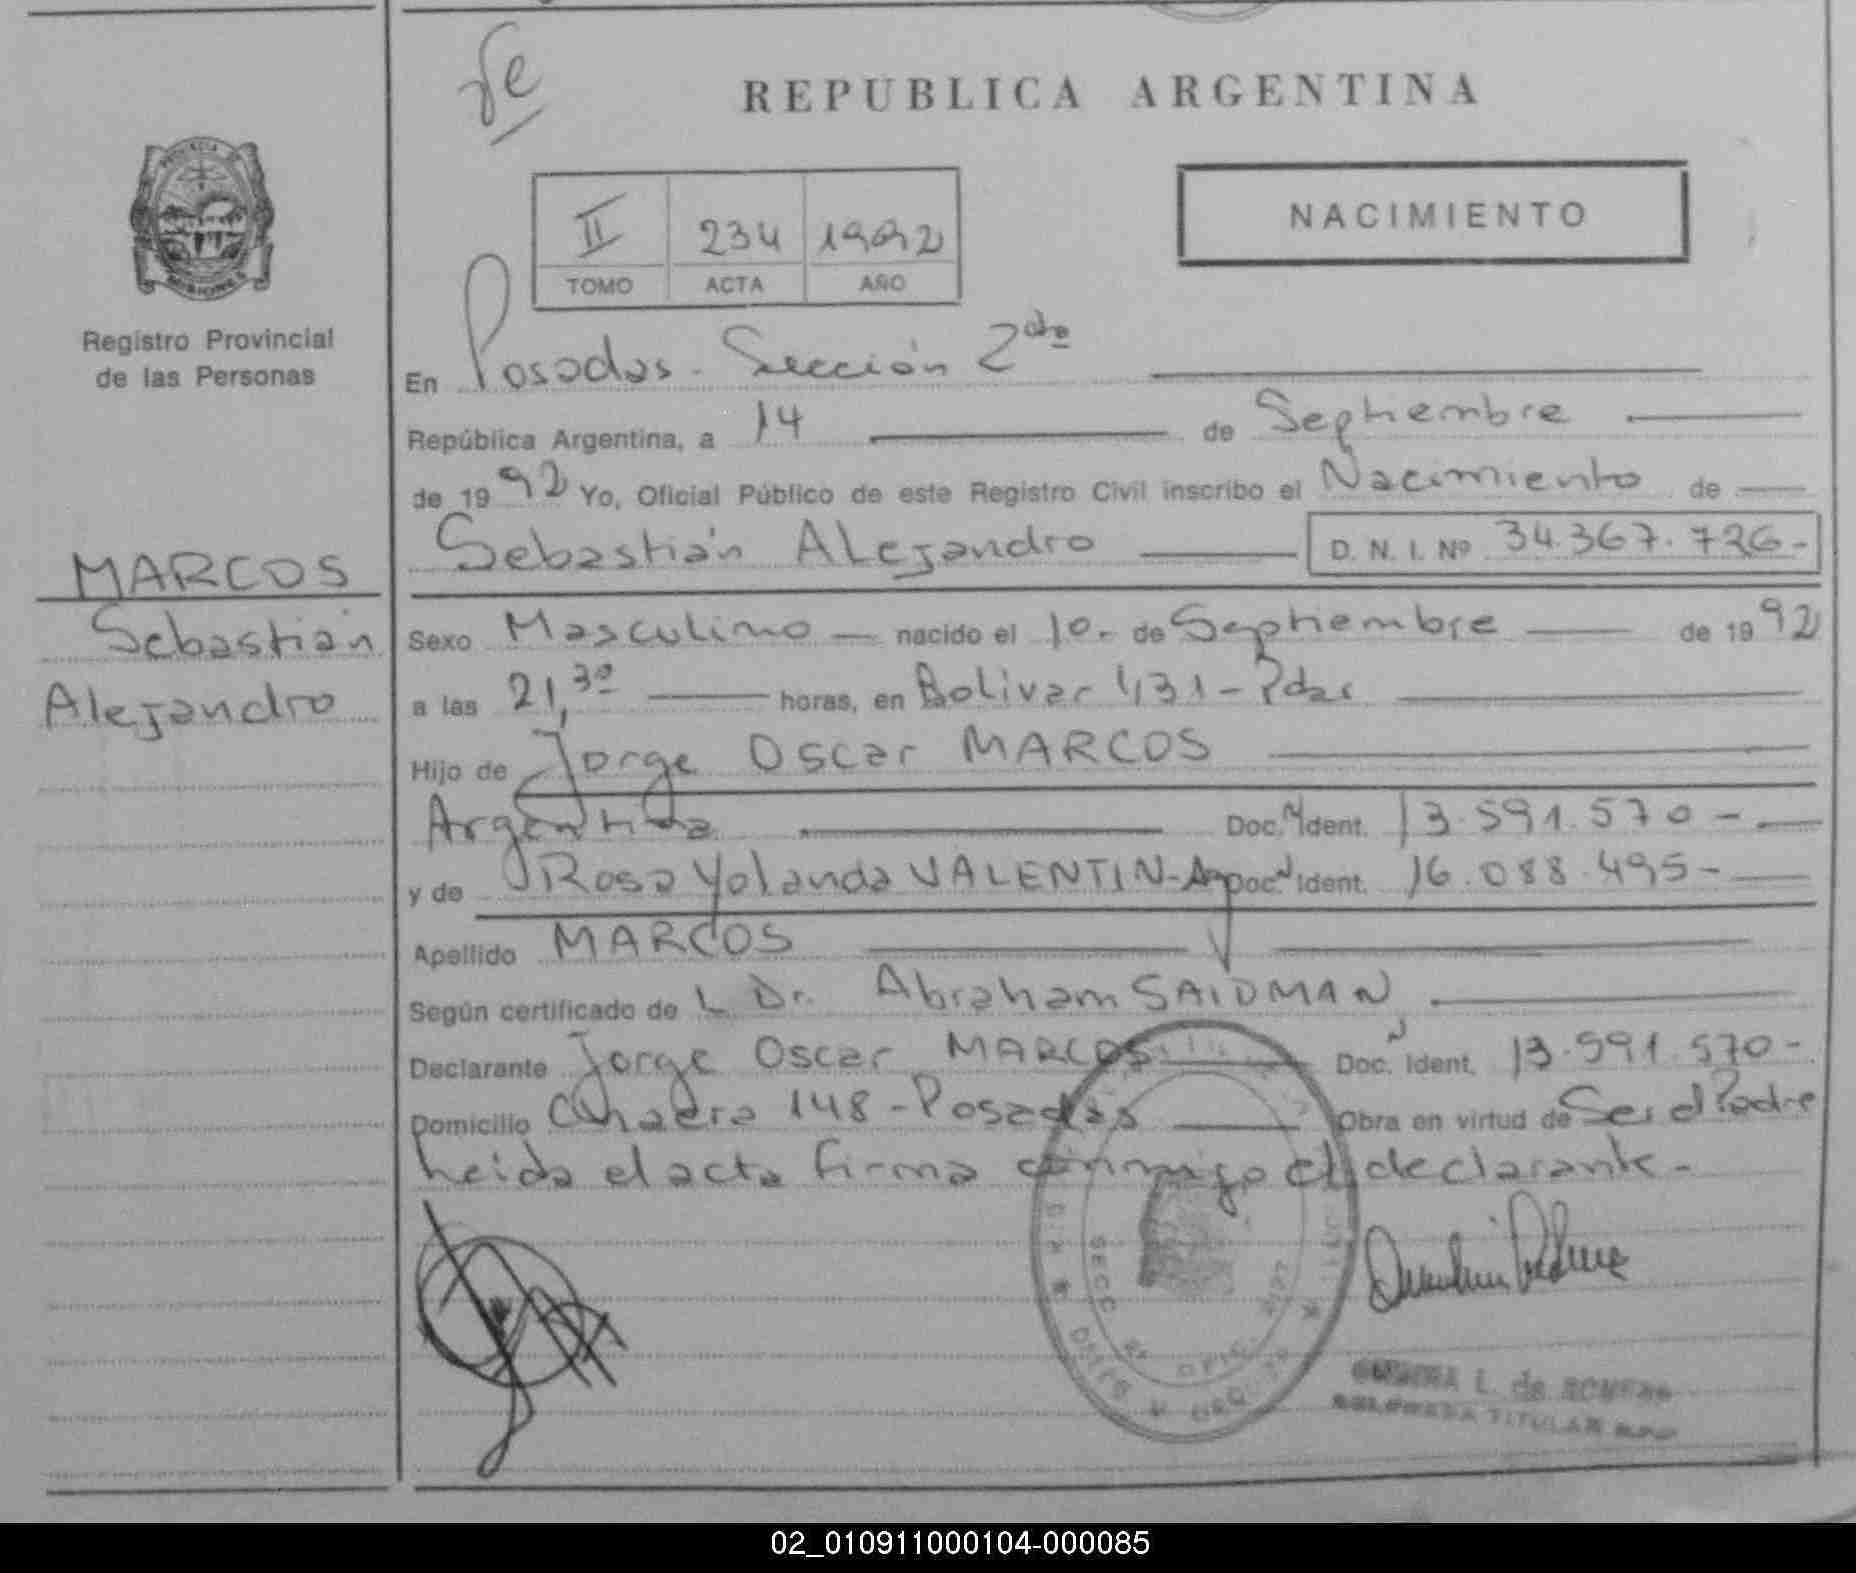 REPUBLICA ARGENTINA
PROVINCIA DE
MISIONES
Registro Provincial
de las Personas
II 234 1992
TOMO ACTA AÑO
NACIMIENTO
En Posadas - Sección 2da
República Argentina, a 14 de Septiembre
de 1992 Yo, Oficial Público de este Registro Civil inscribo el Nacimiento de
Sebastián Alejandro D. N. I. Nº 34.367.726-
MARCOS
Sebastián
Alejandro
Sexo Masculino nacido el 10. de Septiembre de 1992
a las 21,30 horas, en Bolivar 431 - Pdas
Hijo de Jorge Oscar MARCOS
Argentina Doc. Ident. 13.591.570-
y de Rosa Yolanda VALENTIN - Arg Doc. Ident. 16.088.495-
Apellido MARCOS
Según certificado de L Dr. Abraham SAIDMAN
Declarante Jorge Oscar MARCOS Doc. Ident. 13.591.570-
Domicilio Chacra 148 - Posadas Obra en virtud de Ser el Padre
heida el acta firma conmigo el declarante.-
SECC 2ª
L. de ROMERO
TITULAR
02_010911000104-000085